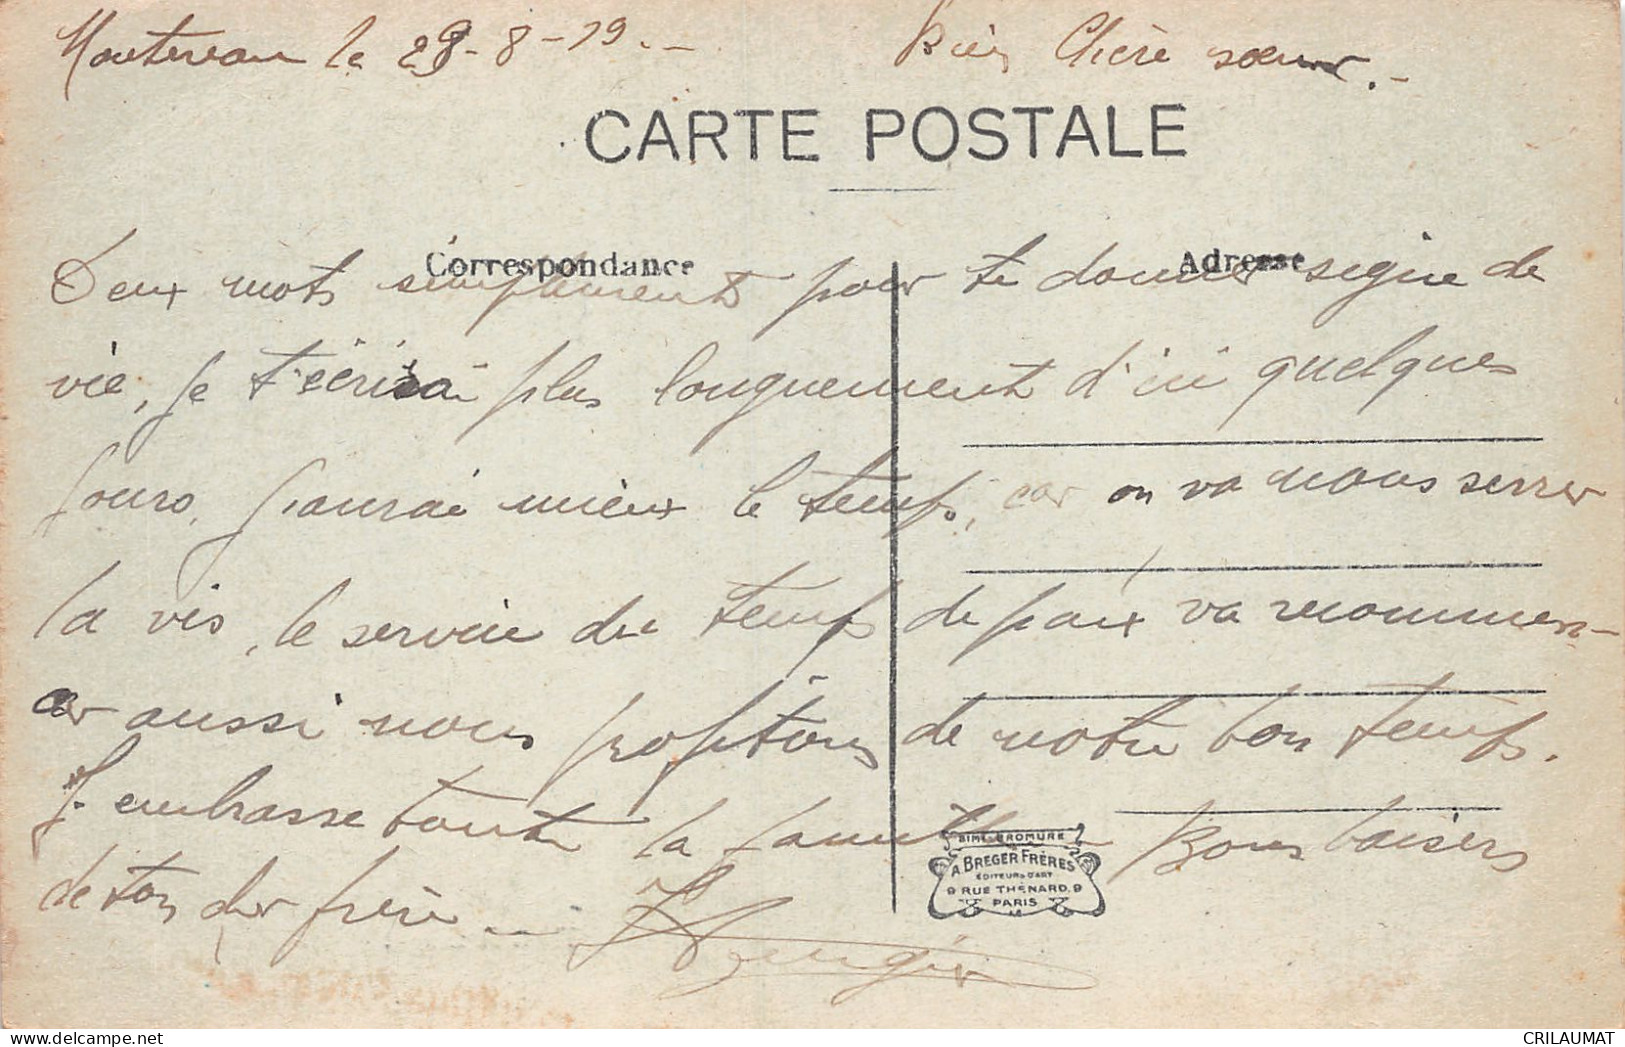 Montereau le 29-8-19.--
Bien Chère sœur.-
CARTE POSTALE
Correspondance
Adresse
Deux mots simplement pour te donner signe de
vie, je t'écrirai plus longuement d'ici quelques
jours, j'aurai mieux le temps, car on va nous serrer
la vis, le service du temps de paix va recommen-
cer aussi nous profitons de notre bon temps.
J'embrasse toute la famille Bons baisers
de ton cher frère --
BIMI-BROMURE
A. BREGER FRÈRES
EDITEURS D'ART
9 RUE THÉNARD, 9
PARIS
CRILAUMAT